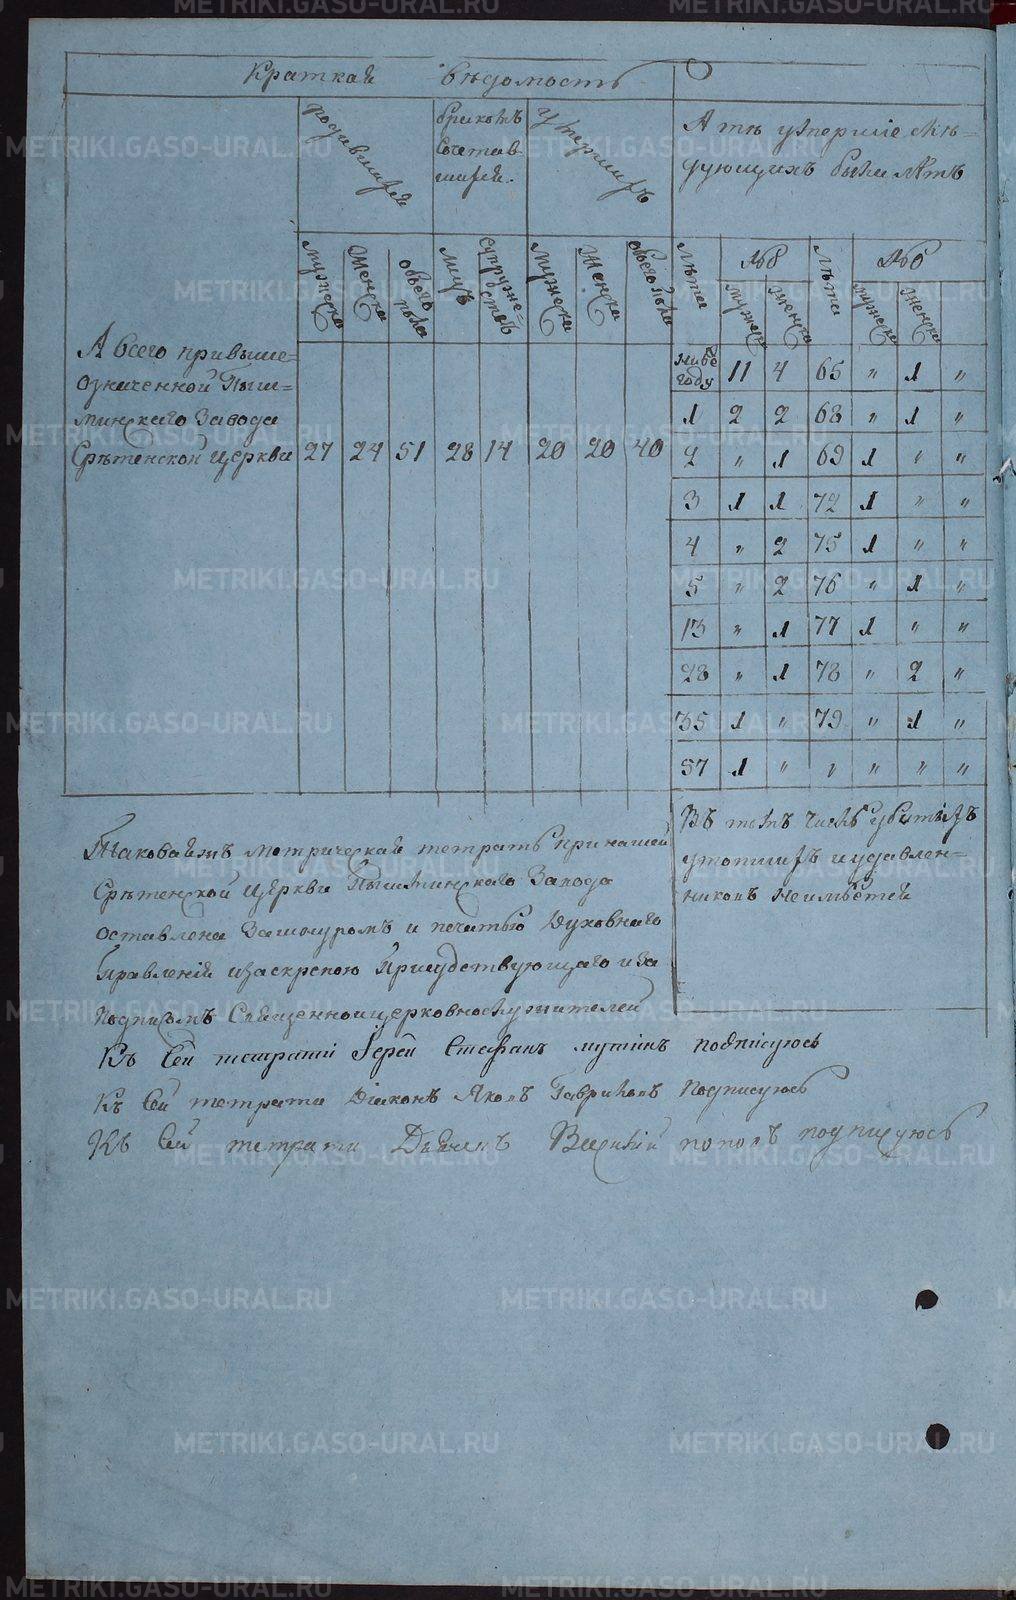 Краткая вѣдомость О
родившихся
бракомъ
сочетав
шихся.
Умершихъ
А тѣ умершіе слѣ=
дующихъ были лѣтъ
мужеска
Женска
обоего
пола
лицъ
супруже=
ствъ
мужеска
Женска
обоего пола
лѣта
мужеска
женска
лѣта
мужеска
женска
А всего привыше=
означенной Пыш=
минскаго Завода
Срѣтенской Церкви 27 24 51 28 14 20 20 40
году 11 4 65 „ 1 „
1 2 2 68 „ 1 „
2 „ 1 69 1 „ „
3 1 1 72 1 „ „
4 „ 2 75 1 „ „
5 „ 2 76 „ 1 „
13 „ 1 77 1 „ „
28 „ 1 78 „ 2 „
35 1 „ 79 „ 1 „
57 1 „ „ „ „ „
Въ томъ числѣ убитыхъ
утопшихъ и удавлен=
никовъ неимѣется
Таковаяжъ метрическая тетрать принашей
Срѣтенской Церкви Пышминскаго Завода
оставлена Зашнуромъ и печатью Духовнаго
Правленія изаскрепою Присудствующаго иза
подписомъ Священноицерковнослужителей
Къ Сей тетрати Іерей Стефанъ мутинъ подписуюсь
Къ Сей тетрати Діаконъ Яковъ Гавриловъ Подписуюсь
Къ Сей тетрати Дьячекъ Василий поповъ подписуюсь
METRIKI.GASO-URAL.RU